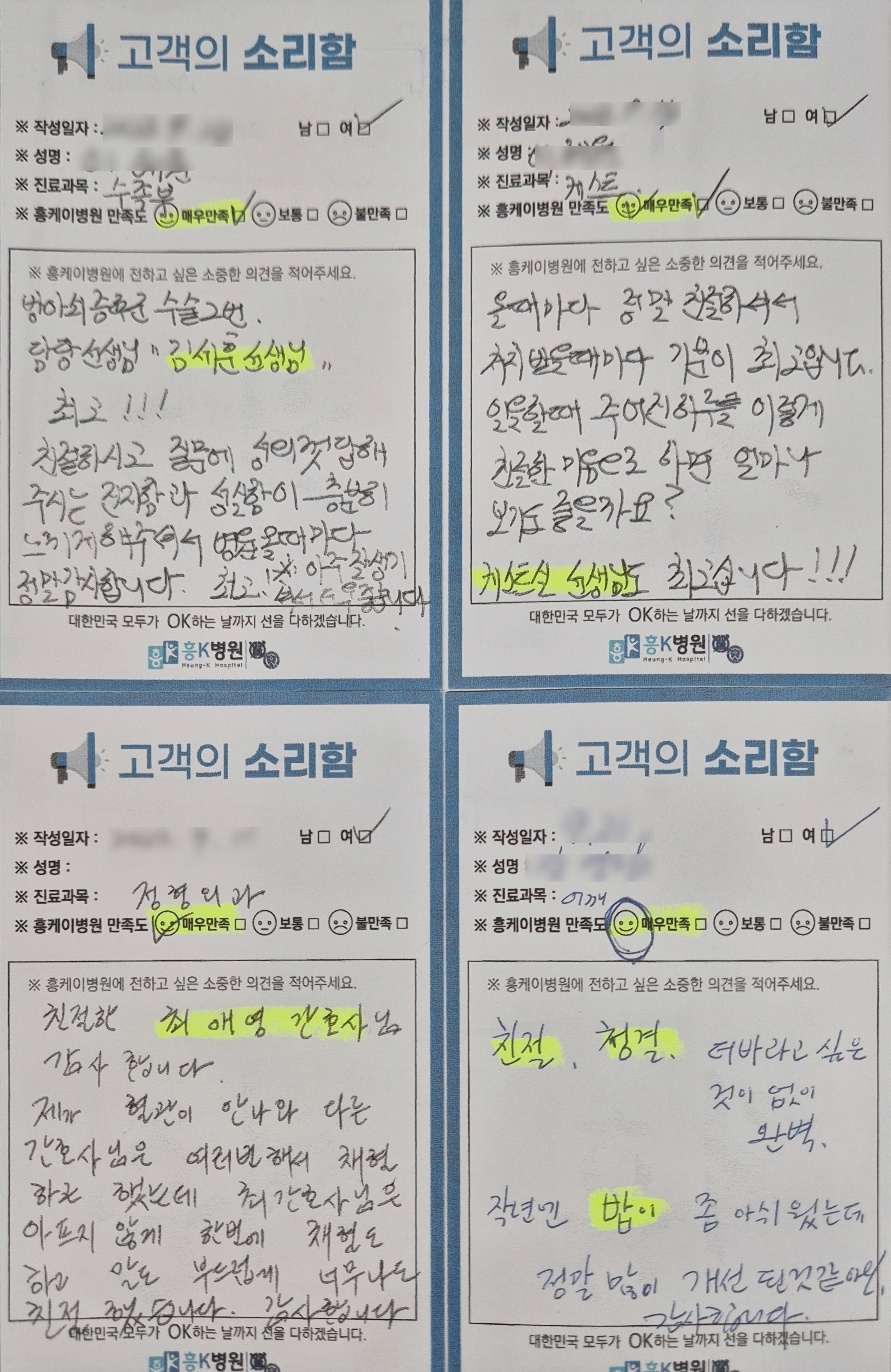 고객의 소리함
※ 작성일자 : 남 □ 여 □
※ 성명 :
※ 진료과목 : 수족부
※ 흥케이병원 만족도 매우만족 □ 보통 □ 불만족 □
※ 흥케이병원에 전하고 싶은 소중한 의견을 적어주세요.
방아쇠증후군 수술2번.
담당선생님 "김세훈선생님"
최고!!!
친절하시고 질문에 성의껏답해
주시는 진지함과 성실함이 충분히
느끼게해주셔서 병원올때마다
정말감사합니다. 최고! 아주 잘생기
셔서 더욱좋습니다
대한민국 모두가 OK하는 날까지 선을 다하겠습니다.
흥K병원
Heung-K Hospital
고객의 소리함
※ 작성일자 : 남 □ 여 □
※ 성명 :
※ 진료과목 : 케스트
※ 흥케이병원 만족도 매우만족 □ 보통 □ 불만족 □
※ 흥케이병원에 전하고 싶은 소중한 의견을 적어주세요.
올때마다 정말 친절하셔서
처치받을때마다 기분이 최고입니다.
일을할때 주어진하루를 이렇게
친절한 마음으로 하면 얼마나
보기도 좋을까요?
케스트실 선생님도 최고십니다!!!
대한민국 모두가 OK하는 날까지 선을 다하겠습니다.
흥K병원
Heung-K Hospital
고객의 소리함
※ 작성일자 : 남 □ 여 □
※ 성명 :
※ 진료과목 : 정형외과
※ 흥케이병원 만족도 매우만족 □ 보통 □ 불만족 □
※ 흥케이병원에 전하고 싶은 소중한 의견을 적어주세요.
친절한 최애영 간호사님
감사 합니다.
제가 혈관이 안나와 다른
간호사님은 여러번해서 채혈
하곤 했는데 최간호사님은
아프지 않게 한번에 채혈도
하고 말도 부드럽게 너무나도
친절 했습니다. 감사합니다
대한민국 모두가 OK하는 날까지 선을 다하겠습니다.
흥K병원
고객의 소리함
※ 작성일자 : 남 □ 여 □
※ 성명
※ 진료과목 : 어깨
※ 흥케이병원 만족도 매우만족 □ 보통 □ 불만족 □
※ 흥케이병원에 전하고 싶은 소중한 의견을 적어주세요.
친절, 청결. 더바라고 싶은
것이 없이
완벽.
작년엔 밥이 좀 아쉬웠는데
정말 많이 개선 된것같아요,
감사합니다.
대한민국 모두가 OK하는 날까지 선을 다하겠습니다.
흥K병원